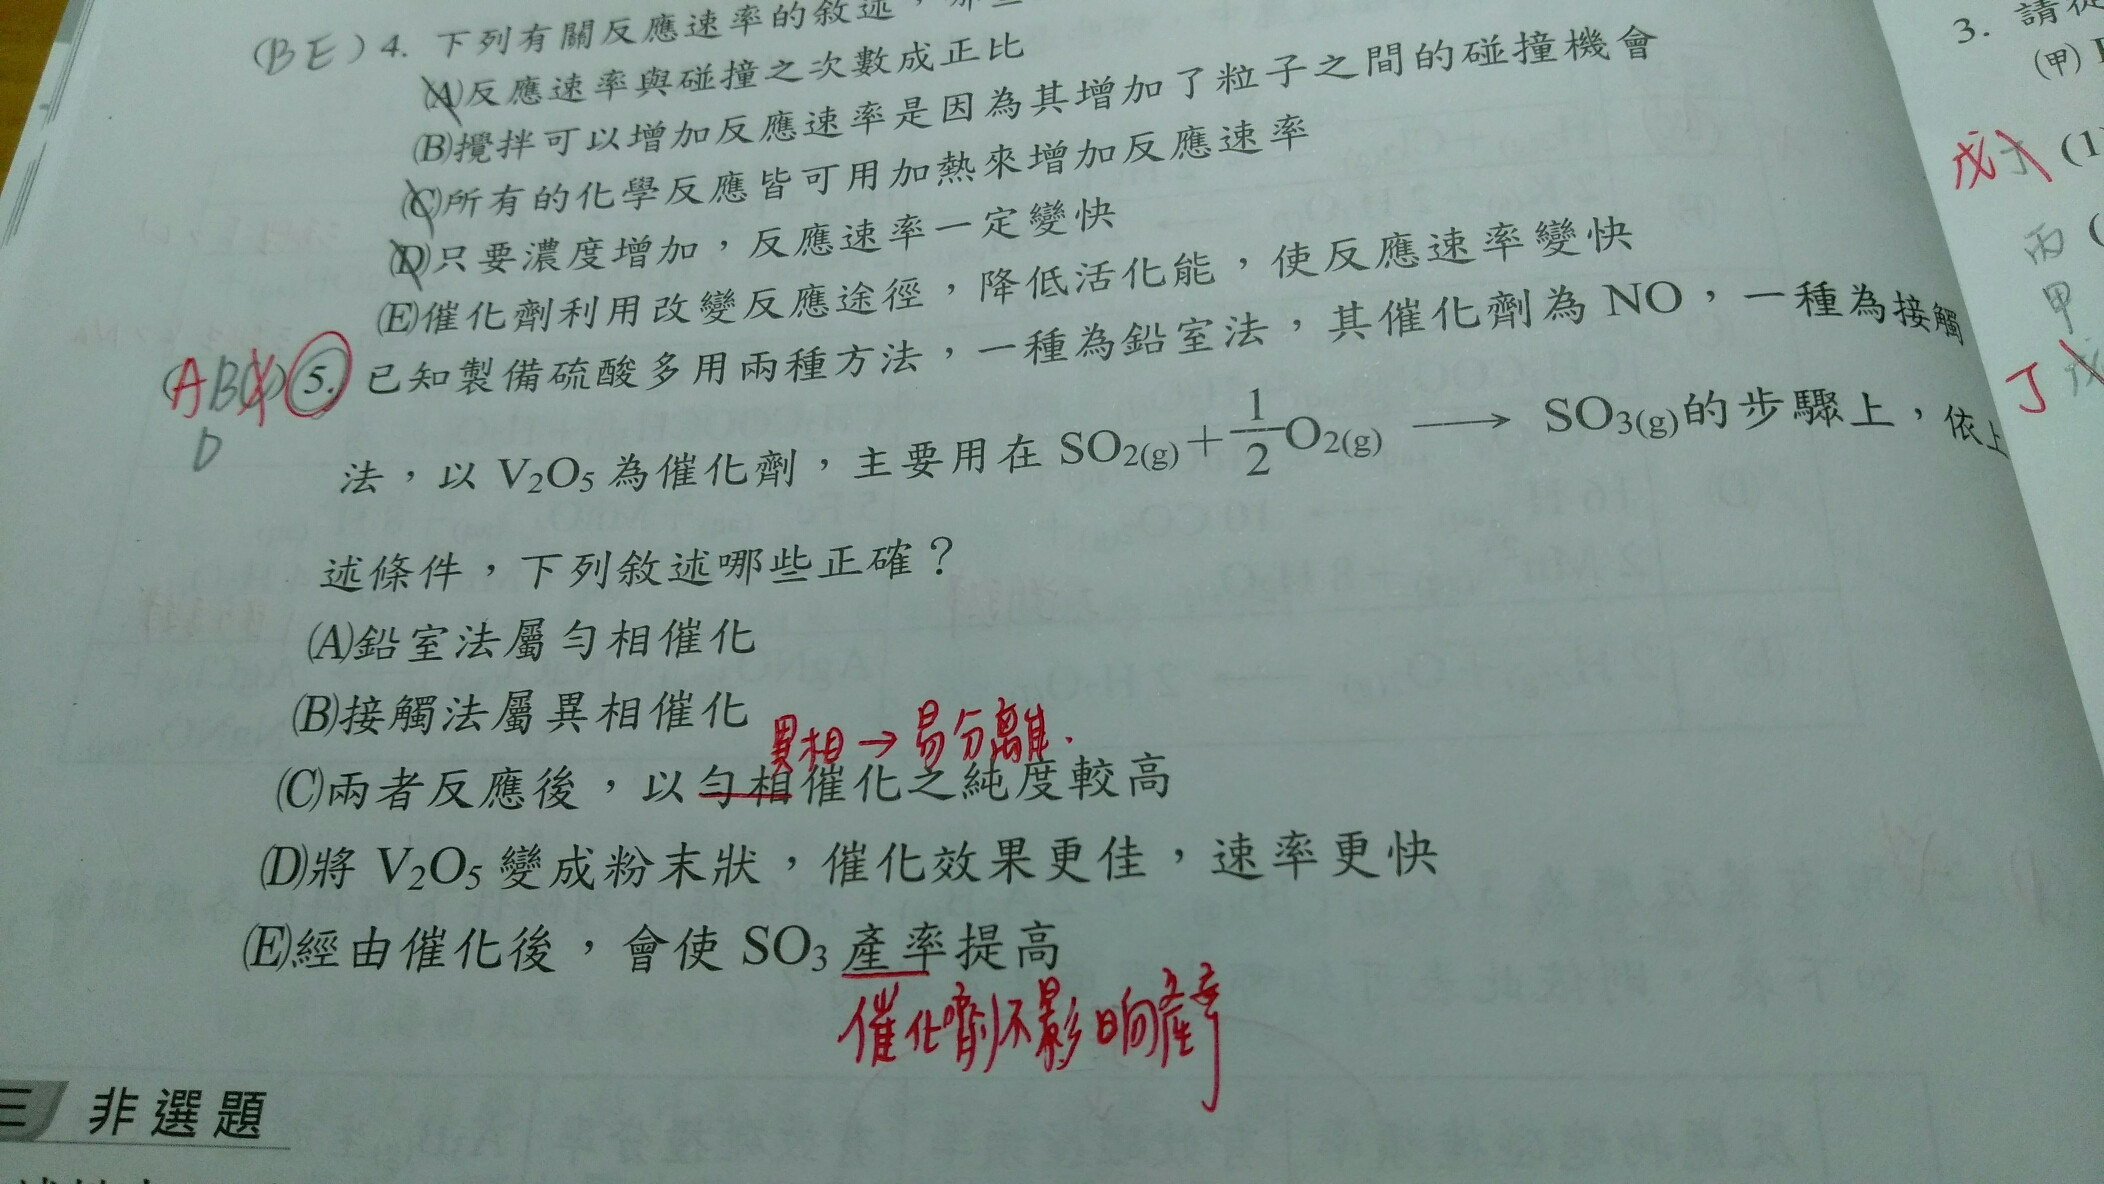 (BE) 4. 下列有關反應速率的敘述，那些
(A)反應速率與碰撞之次數成正比
(B)攪拌可以增加反應速率是因為其增加了粒子之間的碰撞機會
(C)所有的化學反應皆可用加熱來增加反應速率
(D)只要濃度增加，反應速率一定變快
(E)催化劑利用改變反應途徑，降低活化能，使反應速率變快
(ABC) 5. 已知製備硫酸多用兩種方法，一種為鉛室法，其催化劑為 NO，一種為接觸
D
法，以 V₂O₅ 為催化劑，主要用在 SO₂(g)+1/2O₂(g) ⟶ SO₃(g)的步驟上，依上
述條件，下列敘述哪些正確？
(A)鉛室法屬勻相催化
(B)接觸法屬異相催化
異相→易分離.
(C)兩者反應後，以勻相催化之純度較高
(D)將 V₂O₅ 變成粉末狀，催化效果更佳，速率更快
(E)經由催化後，會使 SO₃ 產率提高
催化劑不影响產率
三 非選題
3. 請從
(甲)
戊 丁 (1)
丙 (
甲
丁 戊